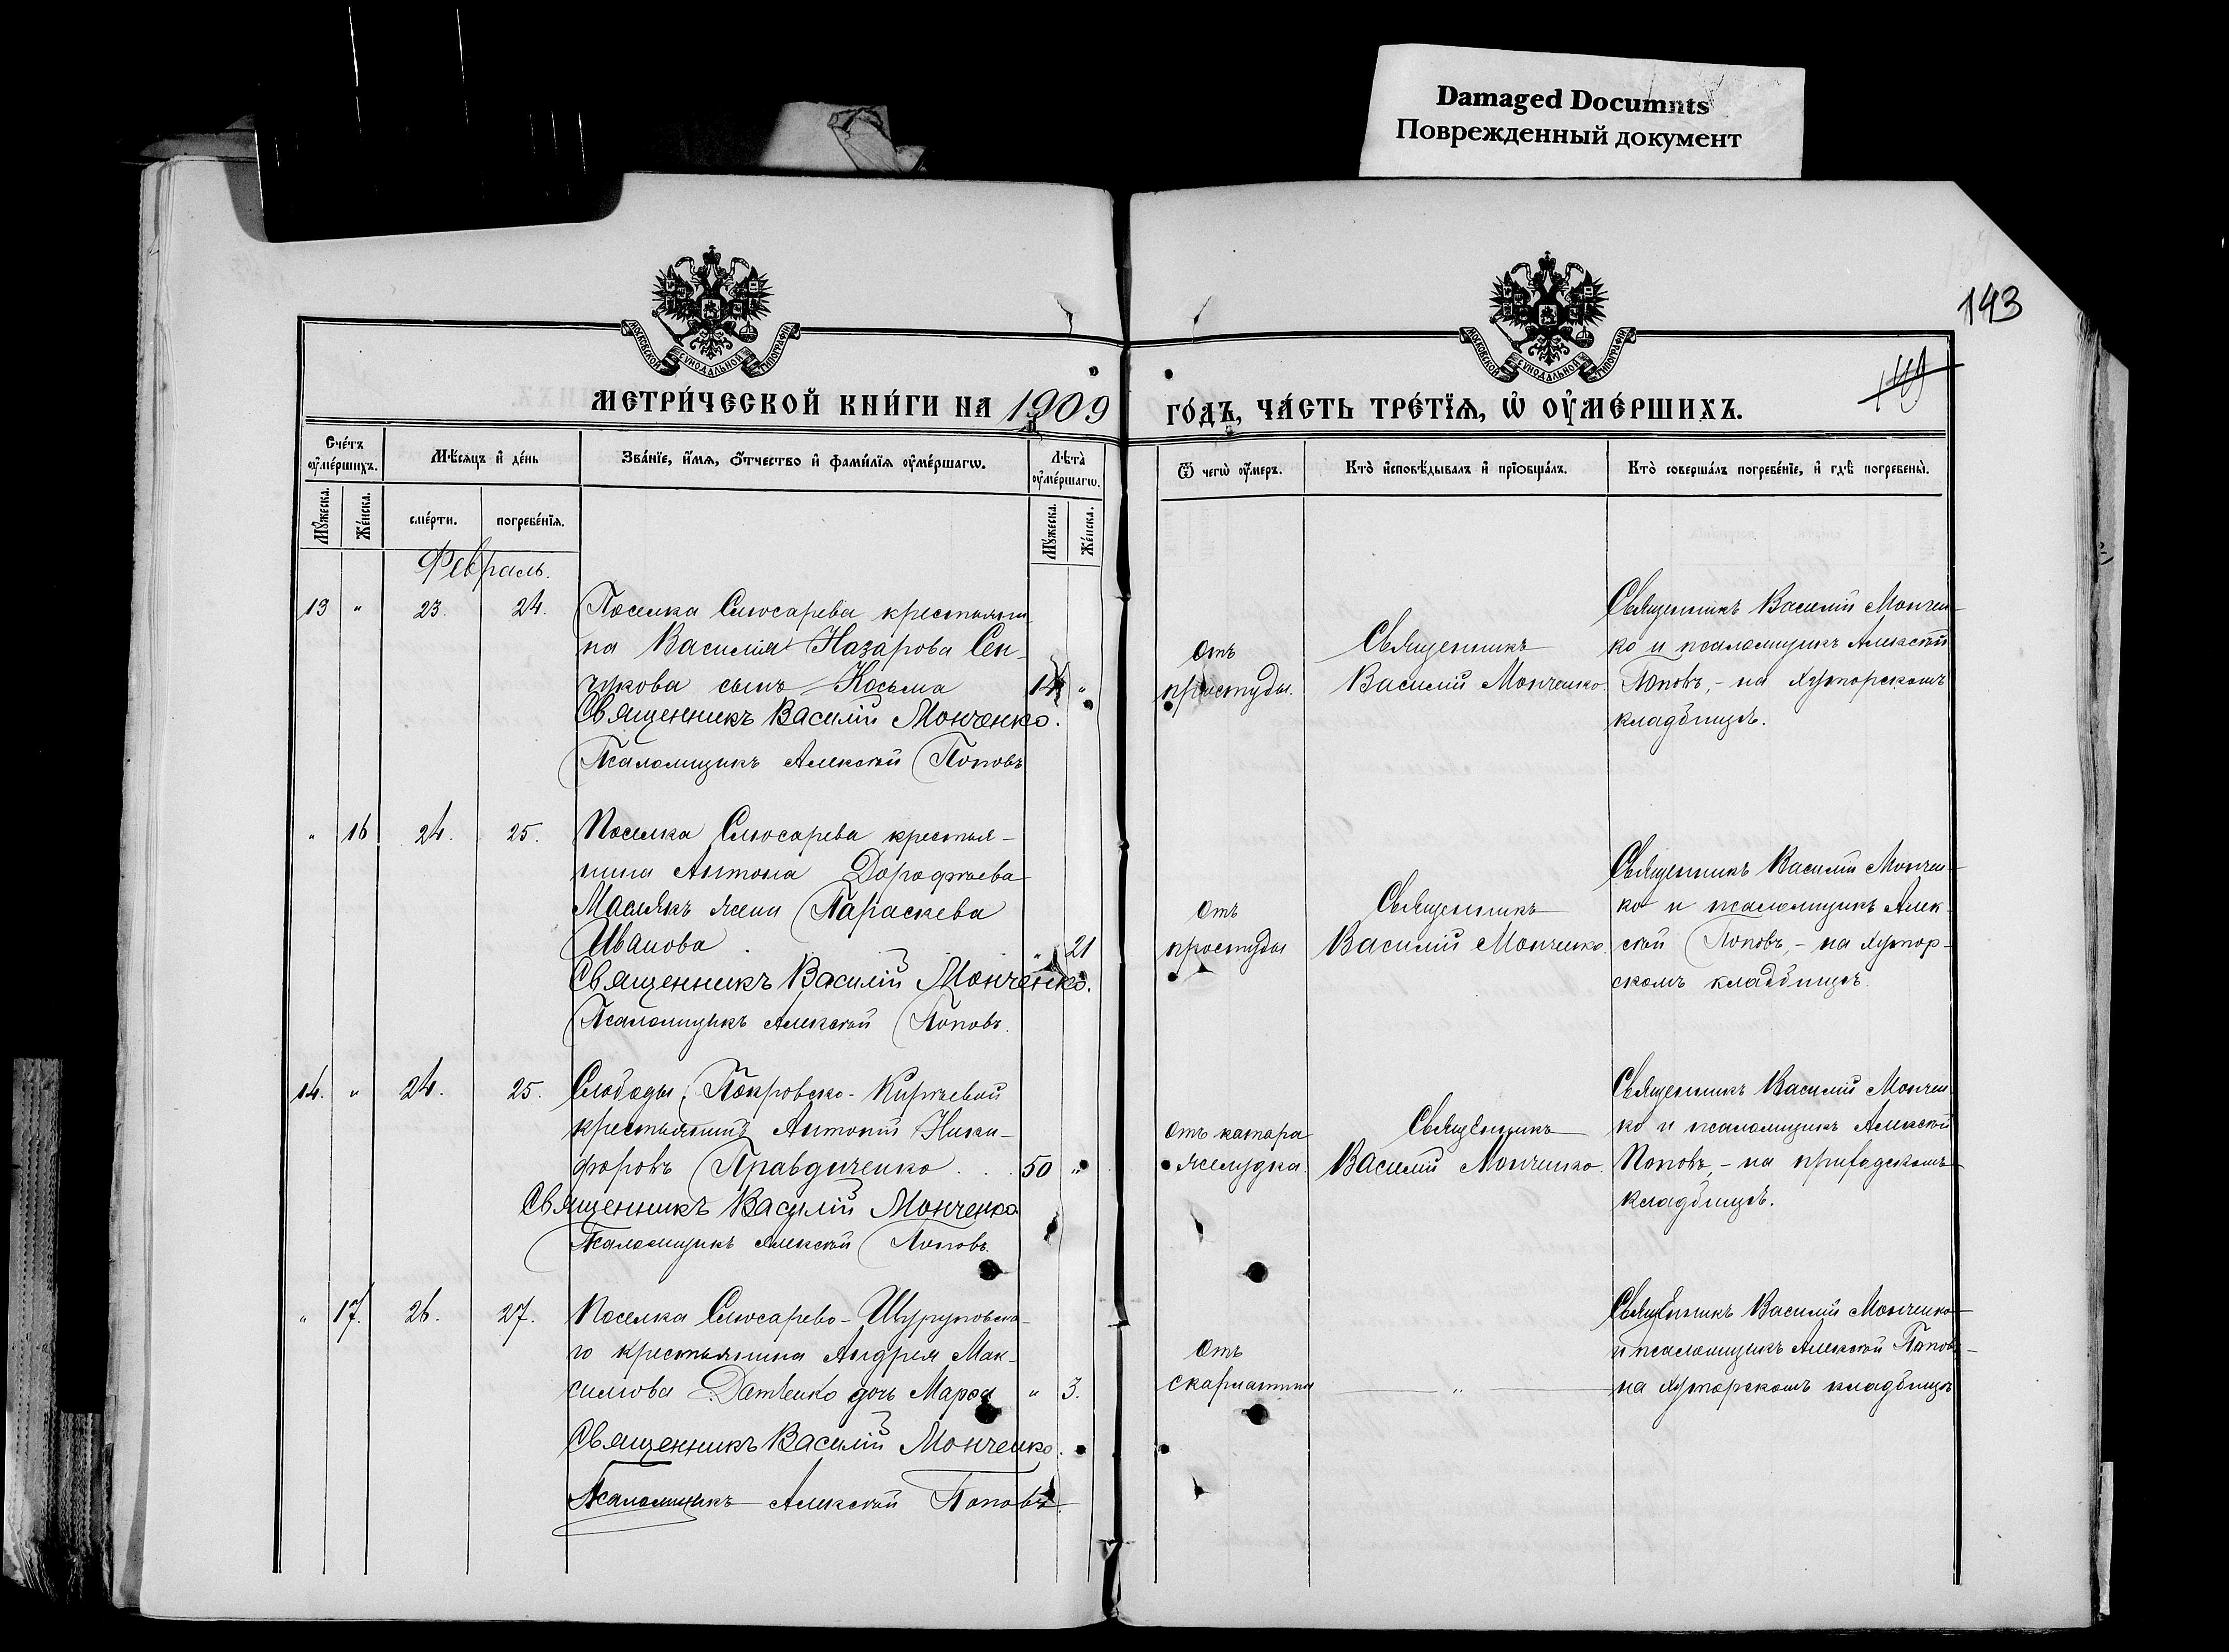 Damaged Documnts
Поврежденный документ
143
149
МОСКОВСКОЙ СѴНОДАЛЬНОЙ ТИПОГРАФІИ
МОСКОВСКОЙ СѴНОДАЛЬНОЙ ТИПОГРАФІИ
МЕТРИ́ЧЕСКОЙ КНИ́ГИ НА 1909
ГО́ДЪ, ЧА́СТЬ ТРЕ́ТЇѦ, Ѡ҆ ОУ҆МЕ́РШИХЪ.
Сче́тъ оу҆ме́ршихъ.
Мѣ́сяцъ и҆ де́нь
Зва́нїе, и҆́мѧ, ѻ҆́тчество и҆ фами́лїѧ оу҆ме́ршагѡ.
Лѣ́та̀ оу҆ме́ршагѡ.
Ѿ чегѡ̀ оу҆́меръ.
Кто̀ и҆сповѣ́дывалъ и҆ прїѡбща́лъ.
Кто̀ соверша́лъ погребе́нїе, и҆ гдѣ̀ погребены̀.
Мꙋ́жеска.
Же́нска.
сме́рти.
погребе́нїѧ.
Мꙋ́жеска.
Же́нска.
Февраль.
13 " 23. 24. Поселка Слюсарева крестьяни-
на Василія Назарова Сен-
чукова сынъ Косьма "
Священникъ Василій Монченко.
Псаломщикъ Алексѣй Поповъ
Отъ
простуды.
Священникъ
Василій Монченко.
Священникъ Василій Мончен-
ко и псаломщикъ Алексѣй
Поповъ, - на хуторскомъ
кладбищѣ.
" 16 24. 25. Поселка Слюсарева крестья-
нина Антона Дорофѣева
Маслякъ жена Параскева
Иванова " 21
Священникъ Василій Монченко.
Псаломщикъ Алексѣй Поповъ.
Отъ
простуды
Священникъ
Василій Монченко.
Священникъ Василій Мончен-
ко и псаломщикъ Алек-
сѣй Поповъ, - на хутор-
скомъ кладбищѣ.
14. " 24. 25. Слободы Покровско-Кирѣевой
крестьянинъ Антоній Ники-
форовъ Правдиченко . . 50 "
Священникъ Василій Монченко
Псаломщикъ Алексѣй Поповъ.
Отъ катара
желудка.
Священникъ
Василій Монченко.
Священникъ Василій Мончен-
ко и псаломщикъ Алексѣй
Поповъ, - на приходскомъ
кладбищѣ.
" 17. 26. 27. Поселка Слюсарево-Шуруповска-
го крестьянина Андрея Мак-
симова дочь " 3.
Священникъ Василій Монченко.
Псаломщикъ Алексѣй Поповъ.
Отъ
скарлатины
"
Священникъ Василій Монченко
и псаломщикъ Алексѣй Поповъ -
на хуторскомъ кладбищѣ